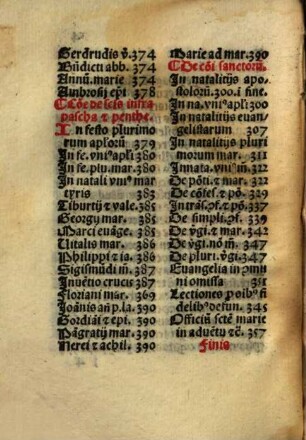 Gerdrudis v̄. 374
Bñdicti abb. 374
Annū. marie 374
Ambrosij epi 378
Cōe de scis infra
pascha et penthe.
In festo plurimo
rum aploꝝ 379
In fe. vniꝰ apli 380
In fe. plu. mar. 380
In natali vniꝰ mar
tyris 383
Tiburtij et vale. 385
Georgy mar. 385
Marci euāge. 385
Uitalis mar. 386
Philippi et ia. 386
Sigismūdi m̄. 387
Inuētio crucis 387
Floriani mar. 369
Joānis añ p. la. 390
Gordiāi et epi. 390
Pāgratij mar. 390
Nerei et achil. 390
Marie ad mar. 390
De cōi sanctoꝝ.
In natalitijs apo-
stoloꝝ. 300. i fine.
In na. vniꝰ apli 300
In natalitijs euan-
gelistarum 307
In natalitijs pluri
morum mar. 311
In nata. vniꝰ m̄. 322
De pōti. et mar. 322
De cōfes. et pō. 329
In trās. pf. et pō. 337
De simpli. pf. 339
De v̄gi. et mar. 342
De v̄gi. nō m̄. 347
De pluri. v̄gi. 347
Euangelia in pmi
ni omissa 351
Lectiones p oibꝰ fi
delibꝰ defun. 345
Officiū scte marie
in aduētu et c̄. 357
Finis